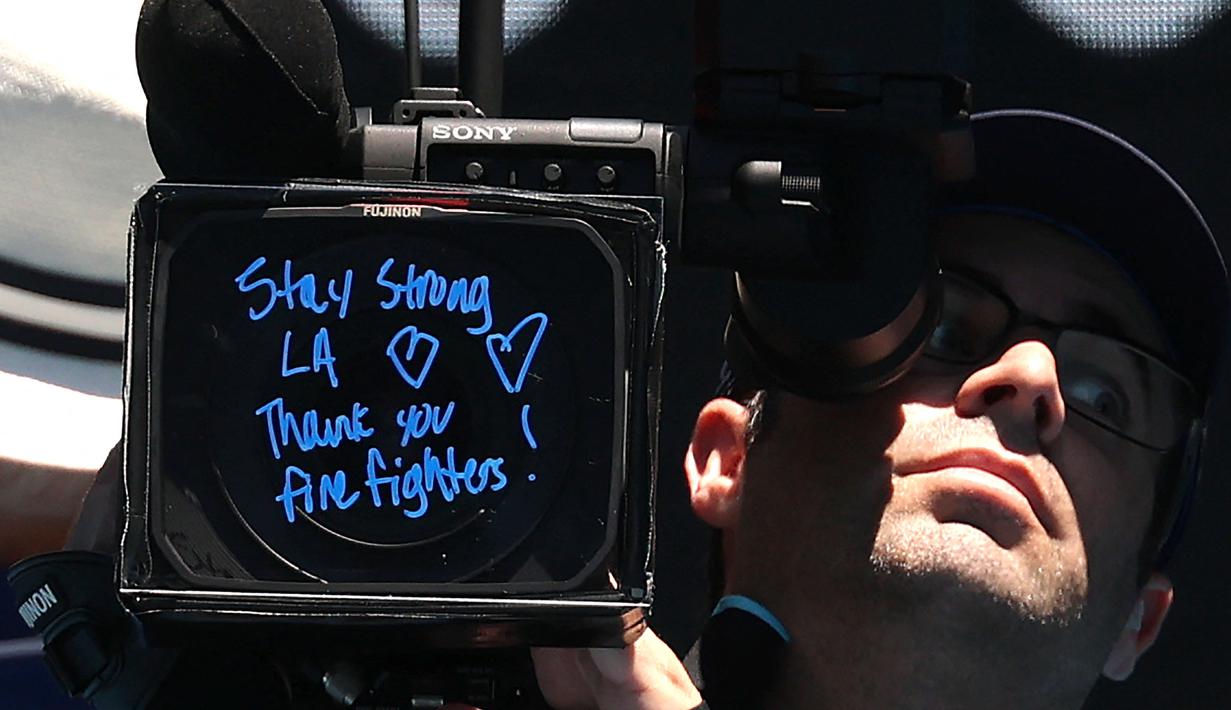 SONY
FUJINON
Stay Strong
LA ♡ ♡
Thank you
firefighters !